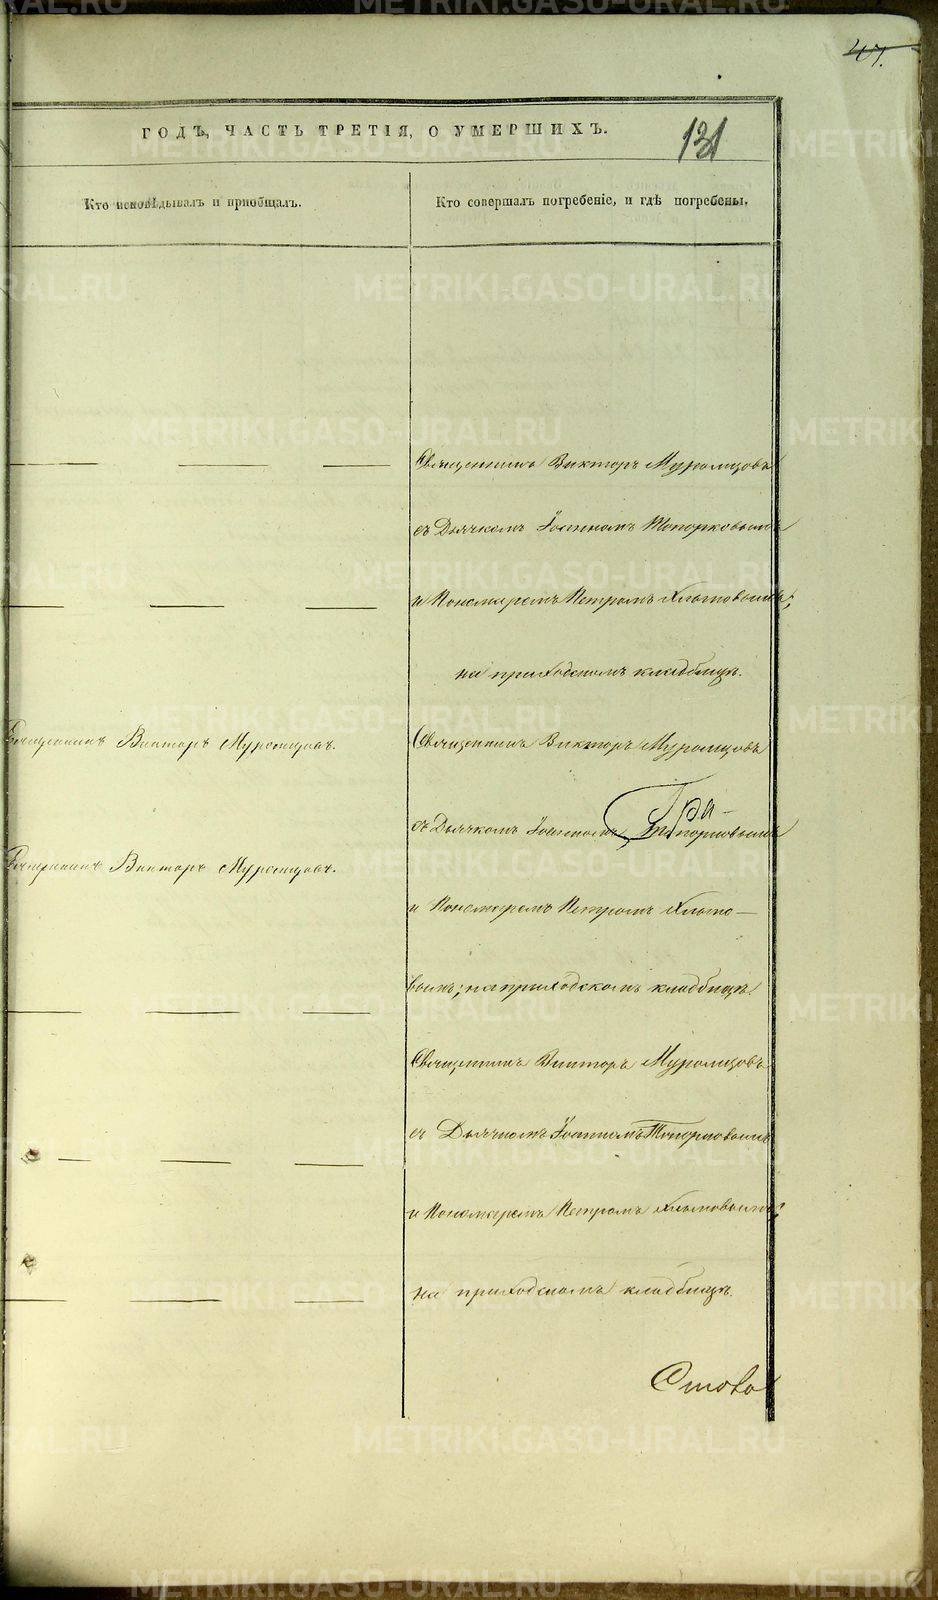 47.
ГОДЪ, ЧАСТЬ ТРЕТІЯ, О УМЕРШИХЪ.
131
Кто исповѣдывалъ и пріобщалъ.
Кто совершалъ погребеніе, и гдѣ погребены.
Священникъ Викторъ Муромцовъ
съ Дьячкомъ Іоанномъ Топорковымъ
и Пономаремъ Петромъ
на приходскомъ кладбищѣ.
Священникъ Викторъ Муромцовъ.
Священникъ Викторъ Муромцовъ
съ Дьячкомъ Іоанномъ Топорковымъ
Гра-
Священникъ Викторъ Муромцовъ.
и Пономаремъ Петромъ
вымъ; на приходскомъ кладбищѣ.
Священникъ Викторъ Муромцовъ
съ Дьячкомъ Іоанномъ Топорковымъ
и Пономаремъ Петромъ
на приходскомъ кладбищѣ.
METRIKI.GASO-URAL.RU